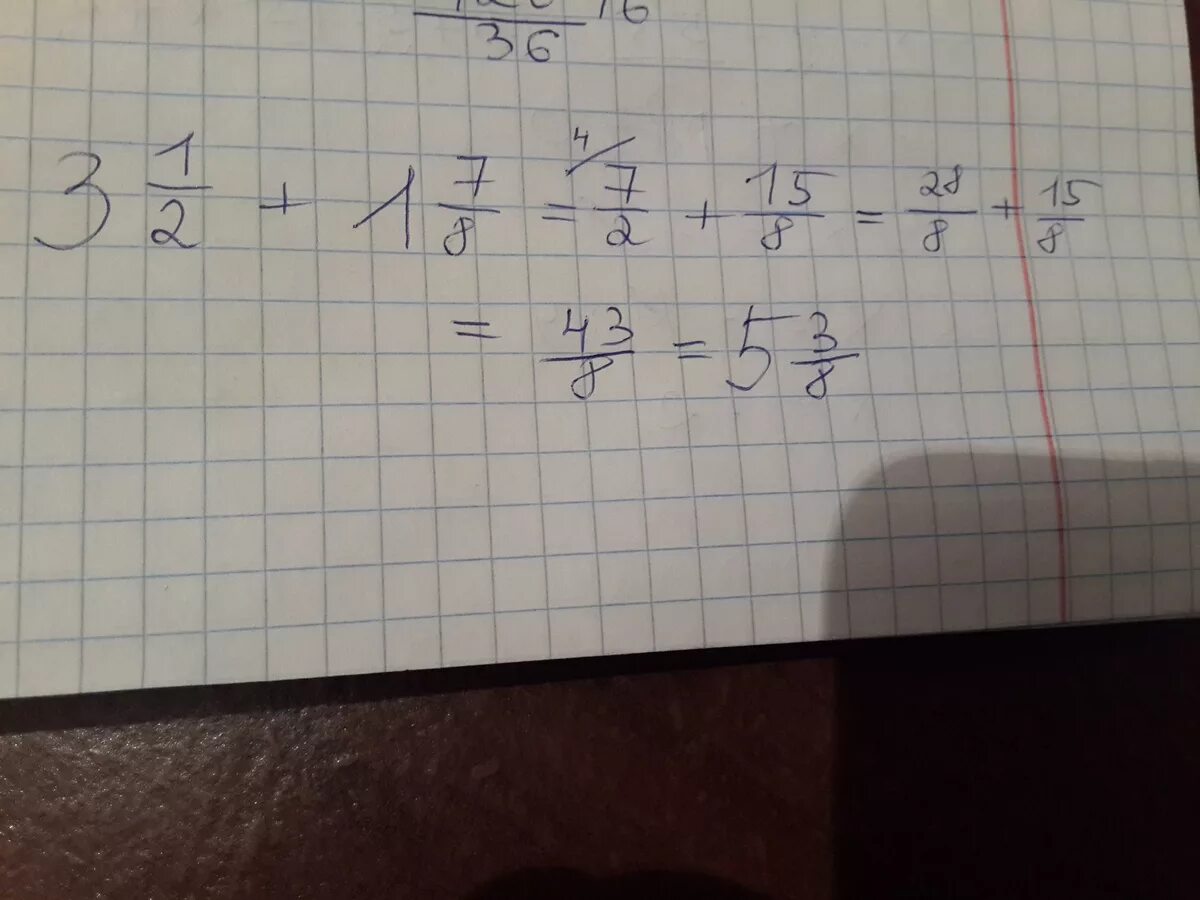 36
3 1/2 + 1 7/8 = 4/ 7/2 + 15/8 = 28/8 + 15/8
= 43/8 = 5 3/8